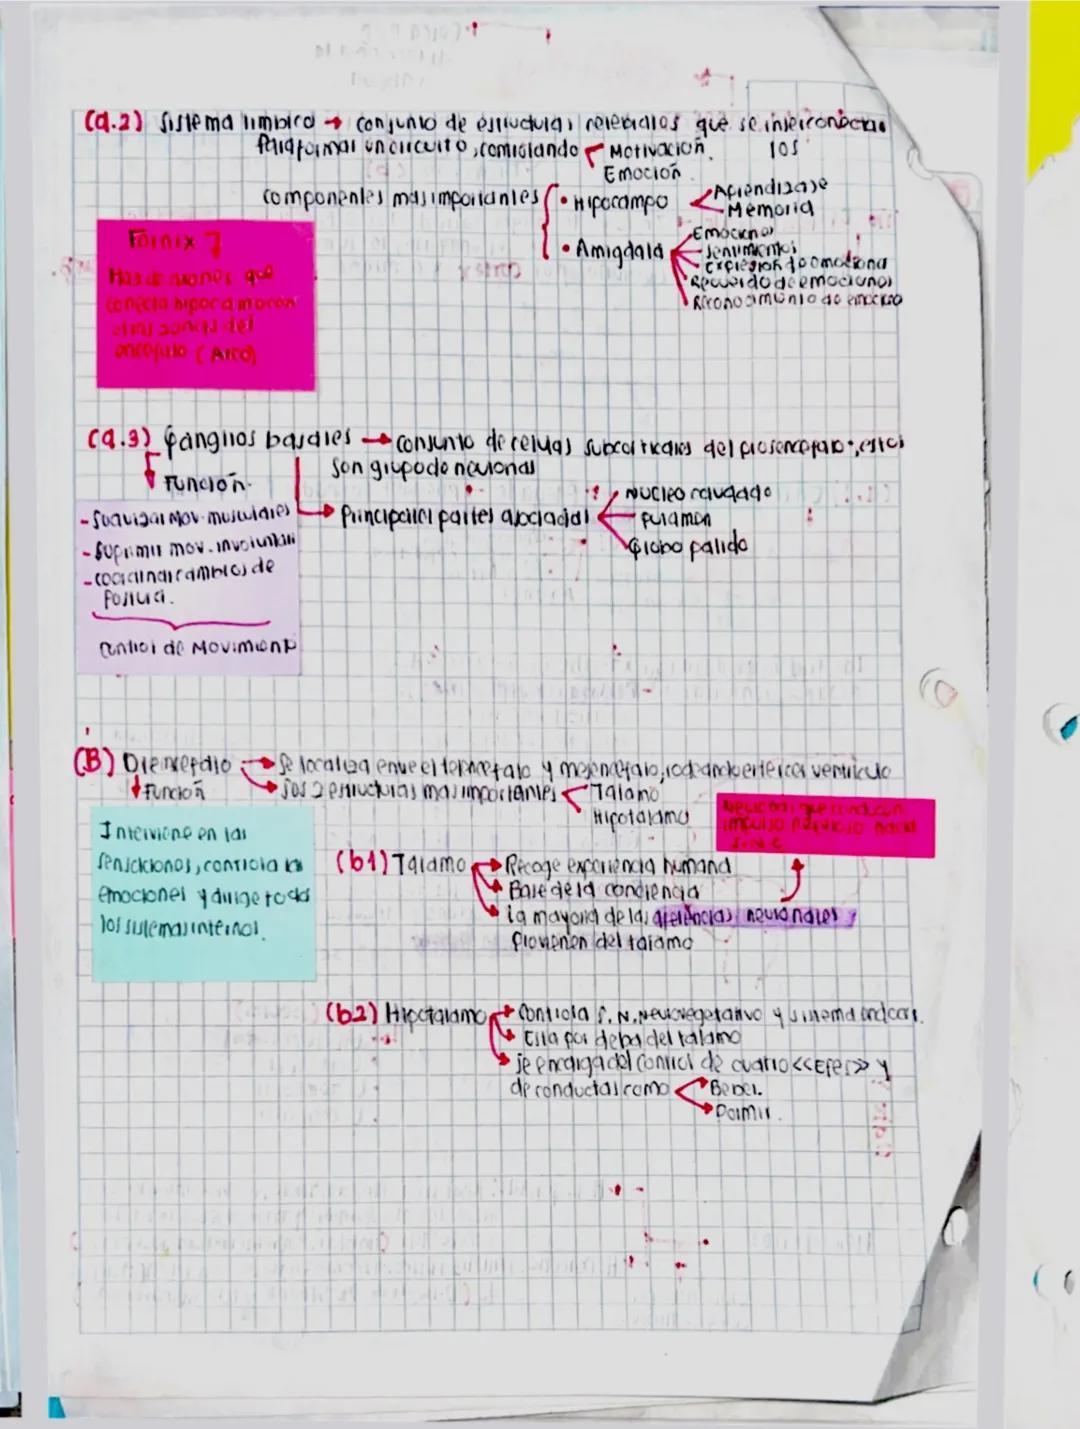 (a.2) Sistema limbico → conjunto de estructuras cerebrales que se interconectan
para formar un circuito, controlando
los
Motivación.
Emoción
componentes mas importantes
• Hipocampo
Aprendizaje
Memoria
• Amigdala
Emociones
Sentimientos
Expresion de emociona
Recuerdo de emociones
Reconocimiento de emocion
Fornix
Haz de axones que
conecta hipocampo con
otras zonas del
encefalo (Arco)
(a.3) Ganglios basales → conjunto de celulas subcorticales del prosencefalo, estos
son grupo de neuronas
Función
- Suavizar Mov. musculares
- Suprimir mov. involuntari
- coordinar cambios de
Postura.
Control de Movimiento
Principales partes asociadas
Nucleo caudado
Putamen
Globo palido
(B) Diencefalo → Se localiza entre el telencefalo y mesencefalo, rodeando el tercer ventriculo
Sus 2 estructuras mas importantes
Talamo
Hipotalamo
Función
Interviene en las
sensaciones, controla las
emociones y dirige todos
los sistemas internos.
Neuronas que conducen
impulso nervioso hacia
S.N.C
(b1) Talamo → Recoge experiencia humana
Base de la conciencia
La mayoria de las aferencias neuronales
Provienen del talamo
(b2) Hipotalamo → Controla S.N. Neurovegetativo y sistema endocri.
Esta por debajo del talamo
Se encarga del control de cuatro <<Efes>> y
de conductas como
Beber.
Dormir.